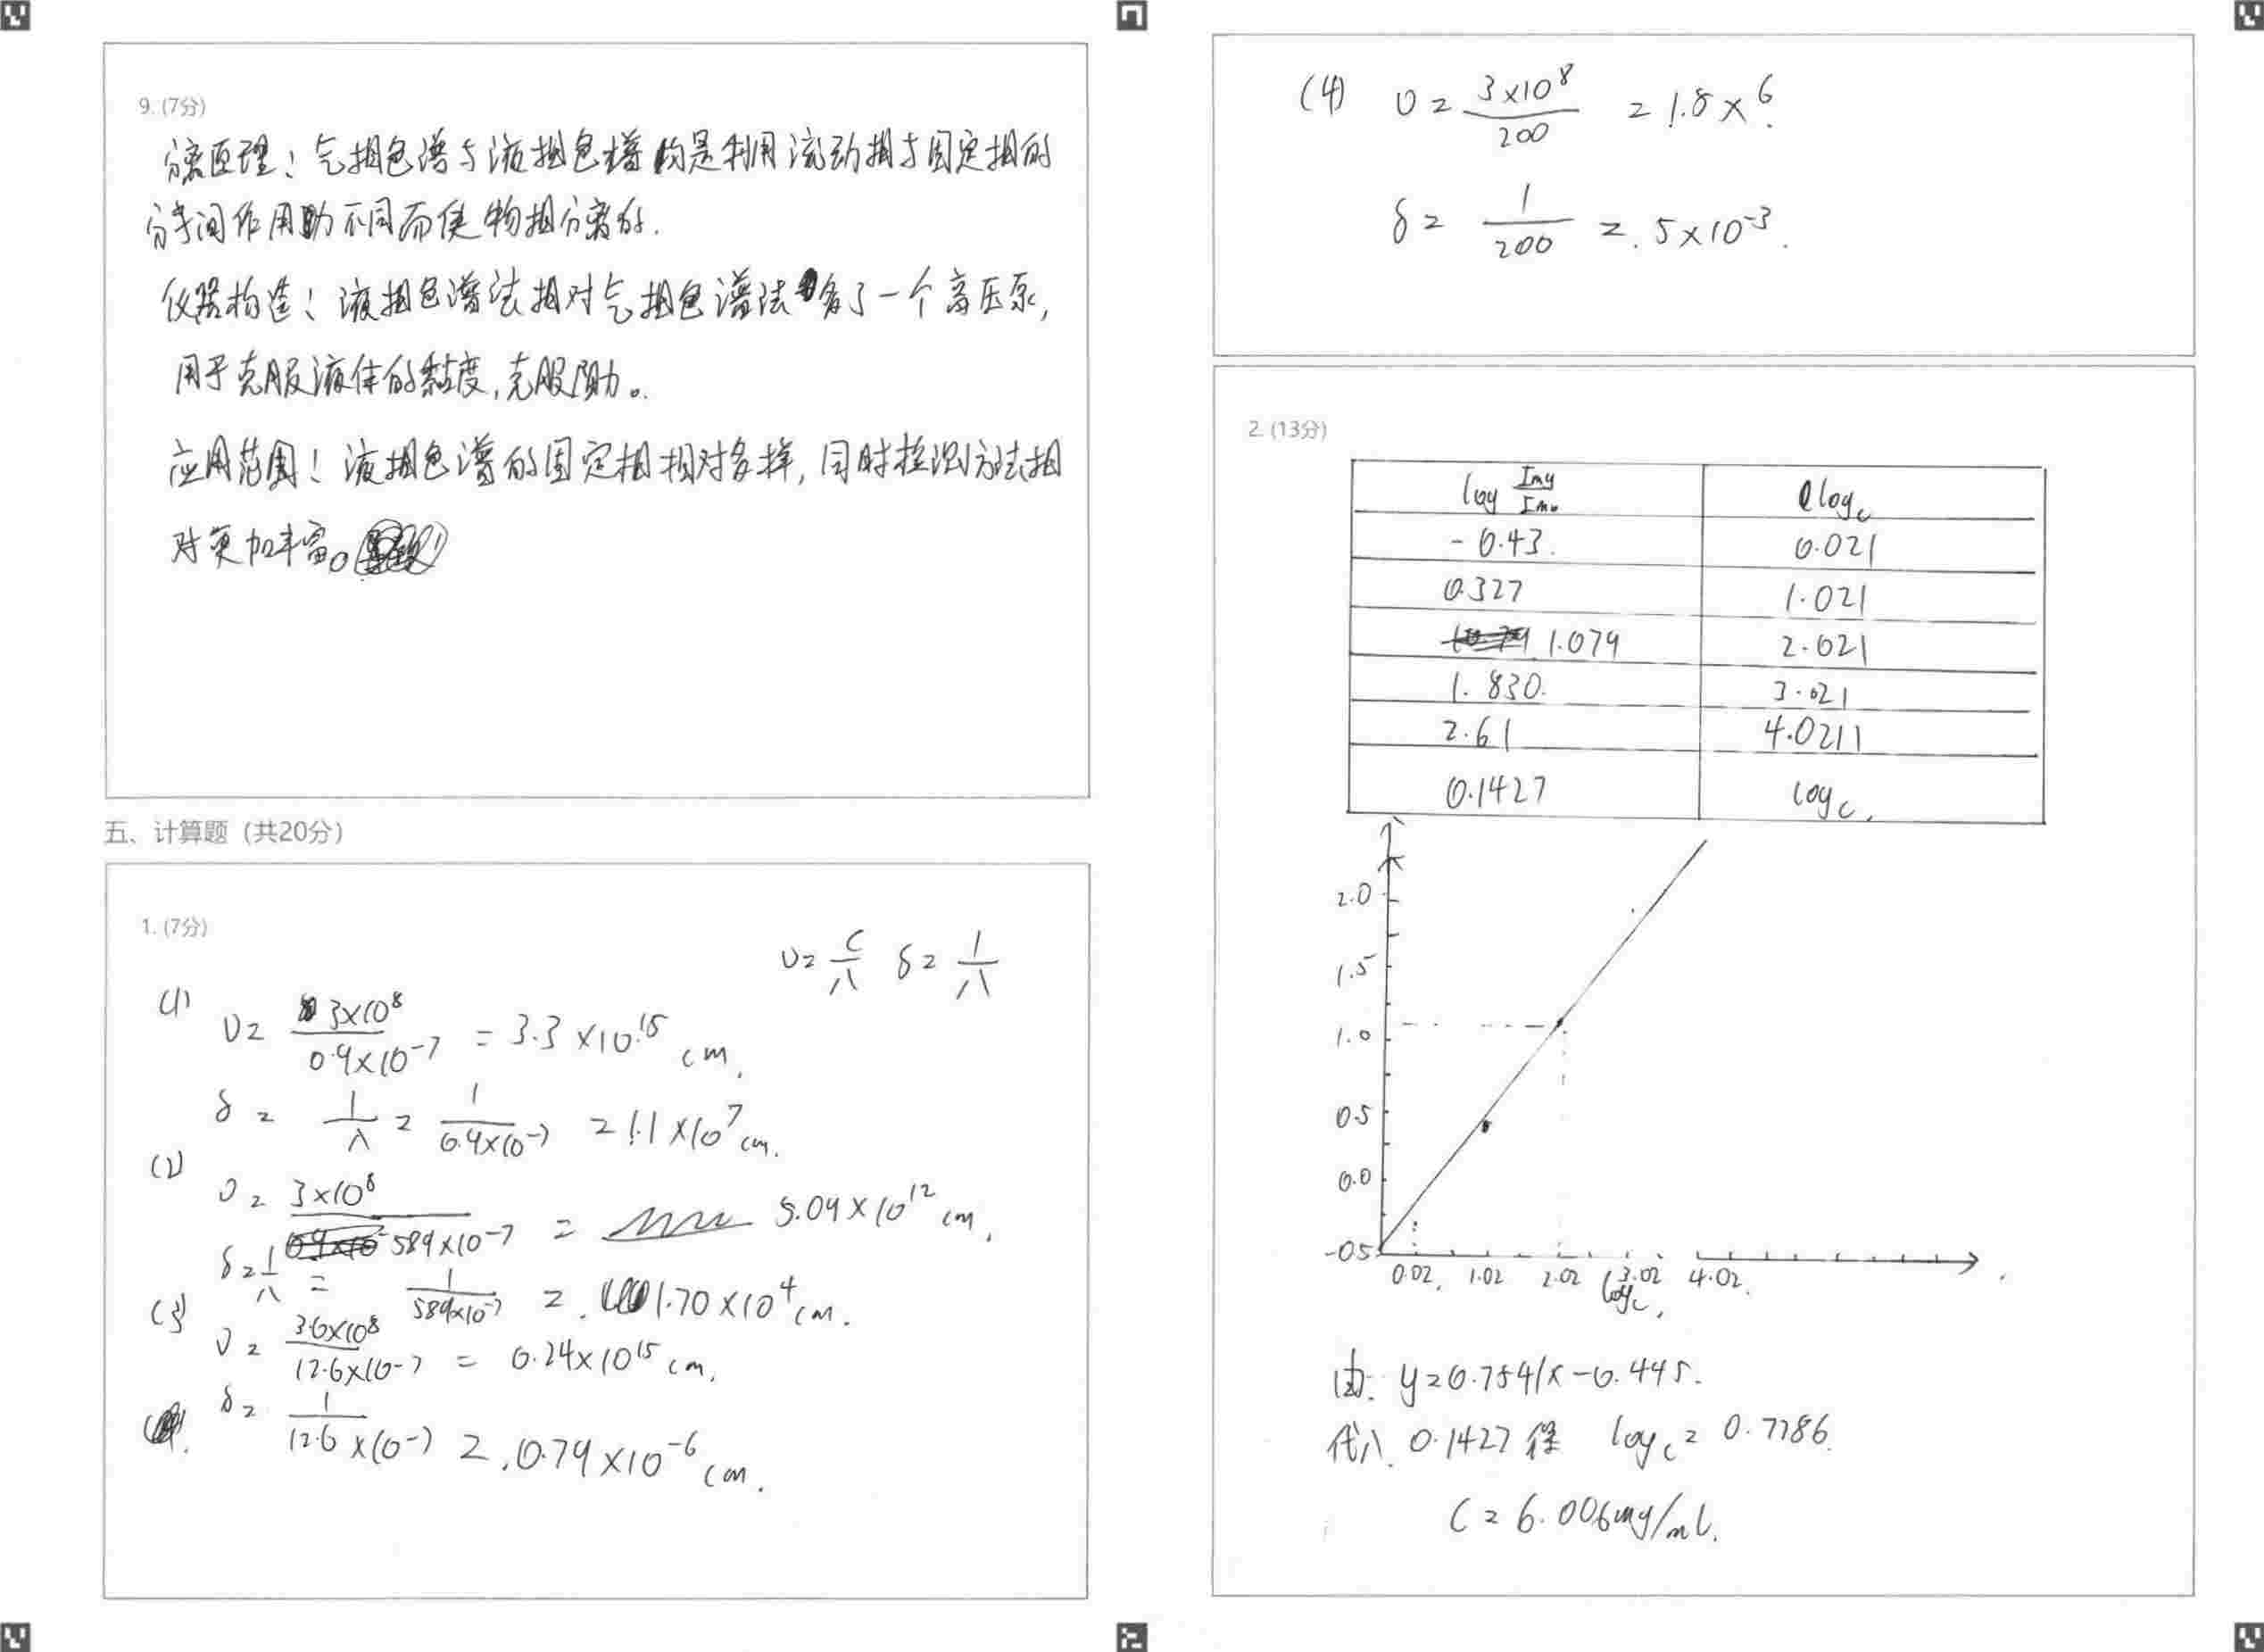 9. (7分)
分离原理：气相色谱与液相色谱均是利用流动相与固定相的
分子间作用力不同而使物相分离的.
仪器构造：液相色谱法相对气相色谱法多了一个高压泵,
用于克服液体的黏度,克服阻力。
应用范围：液相色谱的固定相相对多样,同时检测方法相
对更加丰富。
五、计算题（共20分）
1. (7分)
υ=c/λ δ=1/λ
(1)
υ= 3×10⁸/0.9×10⁻⁷ = 3.3×10¹⁵ cm.
δ = 1/λ = 1/0.9×10⁻⁷ = 1.1×10⁷ cm.
(2)
υ = 3×10⁸/589×10⁻⁷ = 5.09×10¹² cm.
δ=1/λ = 1/589×10⁻⁷ = 1.70×10⁴ cm.
(3)
υ = 3.0×10⁸/12.6×10⁻⁷ = 0.24×10¹⁵ cm.
δ = 1/12.6×10⁻⁷ = 0.79×10⁻⁶ cm.
(4) υ = 3×10⁸/200 = 1.8×6.
δ = 1/200 = 5×10⁻³.
2. (13分)
log Img/Imo log c
-0.43. 0.021
0.327 1.021
1.079 2.021
1.830. 3.021
2.61 4.0211
0.1427 log c.
2.0
1.5
1.0
0.5
0.0
-0.5
0.02. 1.02 2.02 3.02 4.02.
log c.
由: y=0.7541x-0.445.
代入 0.1427 得 log c = 0.7786.
C = 6.006mg/mL.